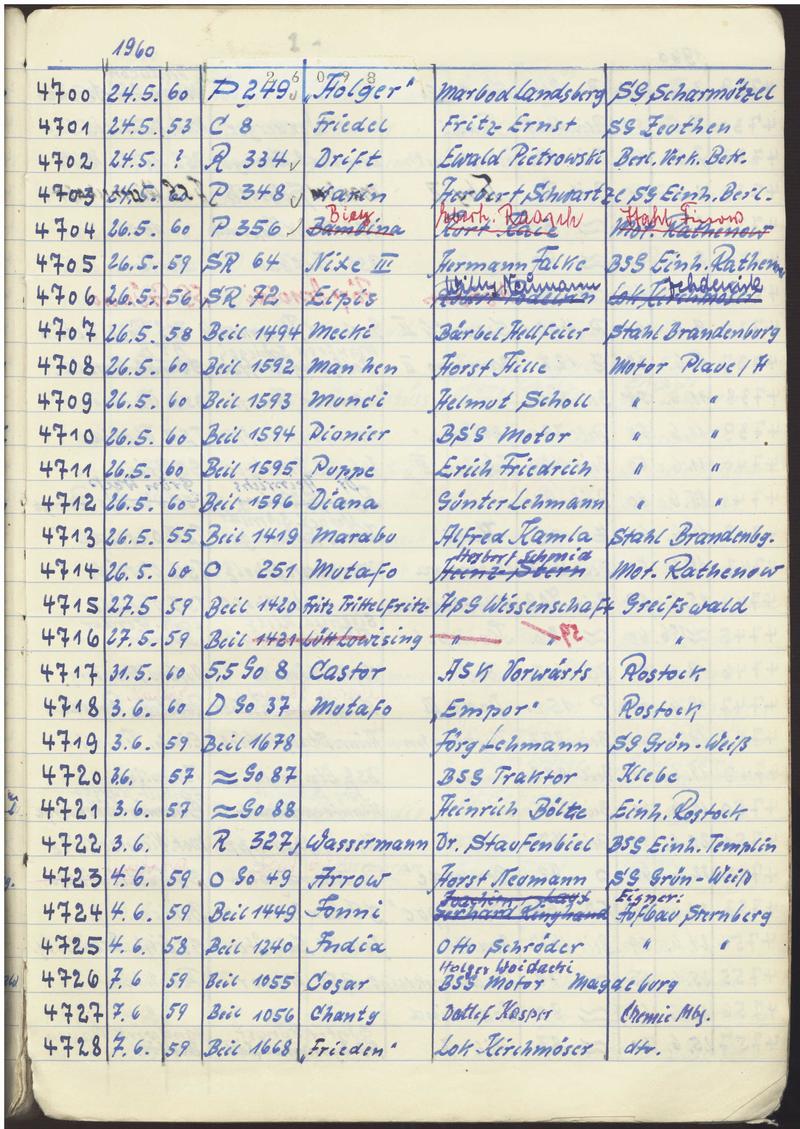 1960
26098
4700 24.5. 60 P 249 "Holger" Marbod Landsberg SG Scharmützel
4701 24.5. 53 C 8 Friedel Fritz Ernst SG Zeuthen
4702 24.5. ? R 334 Drift Ewald Pietrowski Berl. Verk. Betr.
4703 P 348 Herbert Schwartze SG Einh. Berl.
Bieg Stahl Finow
4704 26.5. 60 P 356 Bambina Mot. Rathenow
4705 26.5. 59 SR 64 Nixe III Hermann Falke BSG Einh. Rathenow
Willy Naumann Zehdenick
4706 26.5. 56 SR 72 Elpis Lok Kirchmöser
4707 26.5. 58 Beil 1494 Mecki Bärbel Hellfeier Stahl Brandenburg
4708 26.5. 60 Beil 1592 Manhen Horst Hille Motor Plaue / H
4709 26.5. 60 Beil 1593 Munci Helmut Scholl " "
4710 26.5. 60 Beil 1594 Pionier BSG Motor " "
4711 26.5. 60 Beil 1595 Puppe Erich Friedrich " "
4712 26.5. 60 Beil 1596 Diana Günter Lehmann " "
4713 26.5. 55 Beil 1419 Marabu Alfred Kamla Stahl Brandenbg.
Herbert Schmid
4714 26.5. 60 O 251 Mutafo Heinz Stern Mot. Rathenow
4715 27.5 59 Beil 1420 Fritz Trittelfritz HSG Wissenschaft Greifswald
4716 27.5. 59 Beil 1421 Lütt Lowising " " "
4717 31.5. 60 5,5 Go 8 Castor ASK Vorwärts Rostock
4718 3.6. 60 D Go 37 Mutafo "Empor" Rostock
4719 3.6. 59 Beil 1678 Jörg Lehmann SG Grün-Weiß
4720 26. 57 ≈ Go 87 BSG Traktor Klebe
4721 3.6. 57 ≈ Go 88 Heinrich Bölte Einh. Rostock
4722 3.6. R 327 Wassermann Dr. Staufenbiel BSG Einh. Templin
4723 4.6. 59. O Go 49 Arrow Horst Neumann SG Grün-Weiß
Joachim Eigner:
4724 4.6. 59 Beil 1449 Fonni Gerhard Aufbau Sternberg
4725 4.6. 58 Beil 1240 India Otto Schröder " "
Holger Woidacki
4726 7.6 59 Beil 1055 Cosar BSG Motor Magdeburg
4727 7.6 59 Beil 1056 Chanty Detlef Kasper Chemie Mbg.
4728 7.6. 59 Beil 1668 "Frieden" Lok Kirchmöser dtr.